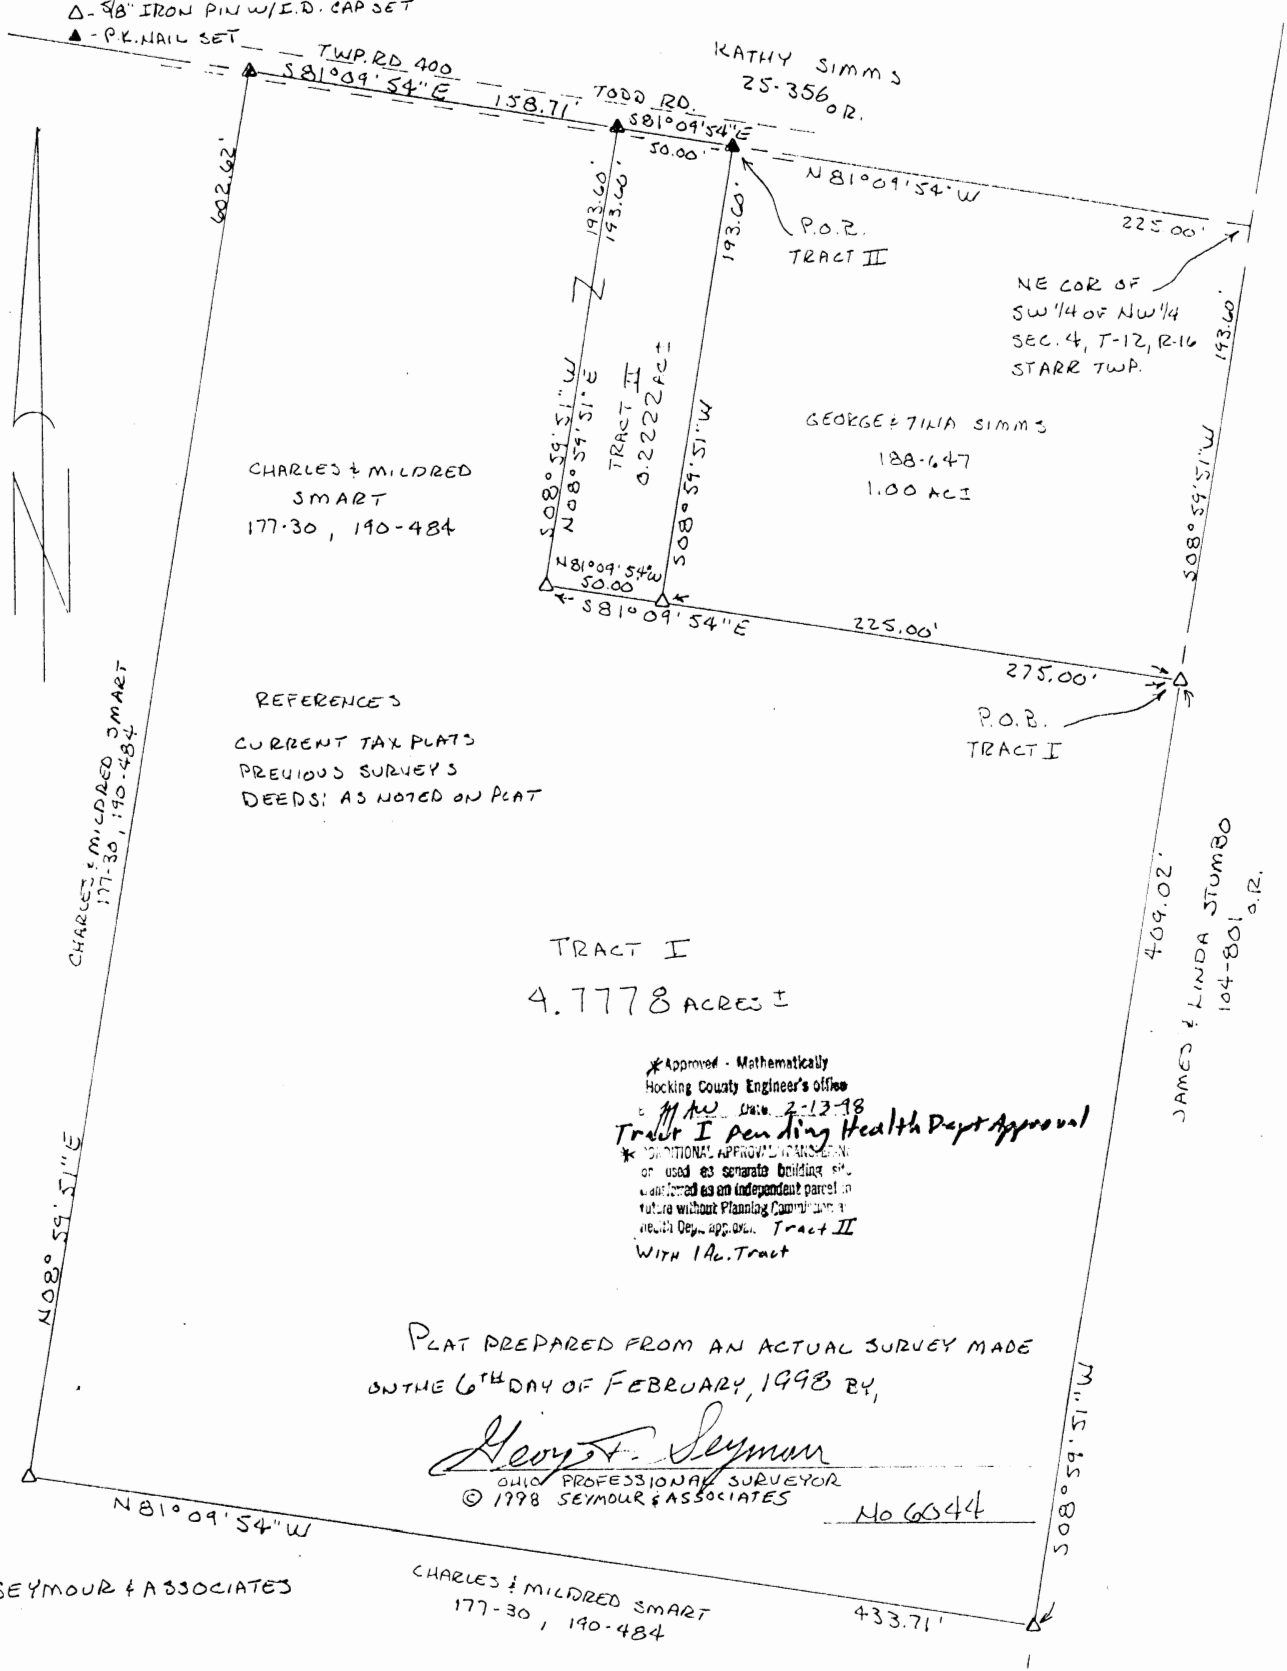 △ - 5/8" IRON PIN W/I.D. CAP SET
▲ - P.K. NAIL SET
TWP. RD 400
S81°09'54"E
158.71'
TODD RD.
S81°09'54"E
50.00'
KATHY SIMMS
25-356
O.R.
N81°09'54"W
225.00'
602.62'
193.60'
193.60'
193.60'
P.O.B.
TRACT II
NE COR OF
SW 1/4 OF NW 1/4
SEC. 4, T-12, R-16
STARR TWP.
193.60'
S08°59'51"W
N08°59'51"E
TRACT II
0.2222 AC±
S08°59'51"W
GEORGE & TINA SIMMS
188-647
1.00 AC±
S08°59'51"W
CHARLES & MILDRED
SMART
177-30, 190-484
N81°09'54"W
50.00'
S81°09'54"E
225.00'
275.00'
P.O.B.
TRACT I
REFERENCES
CURRENT TAX PLATS
PREVIOUS SURVEYS
DEEDS: AS NOTED ON PLAT
CHARLES & MILDRED SMART
177-30, 190-484
N08°59'51"E
409.02'
JAMES & LINDA STUMBO
104-801
O.R.
TRACT I
4.7778 ACRES ±
* Approved - Mathematically
Hocking County Engineer's office
MAW Date 2-13-98
Tract I pending Health Dept Approval
* CONDITIONAL APPROVAL/TRANSFER N
or used as separate building sit
transferred as an independent parcel in
future without Planning Commission
Health Dept. approval. Tract II
WITH 1 Ac. Tract
PLAT PREPARED FROM AN ACTUAL SURVEY MADE
ON THE 6TH DAY OF FEBRUARY, 1998 BY,
George F. Seymour
OHIO PROFESSIONAL SURVEYOR
© 1998 SEYMOUR & ASSOCIATES
No 6044
S08°59'51"W
N81°09'54"W
SEYMOUR & ASSOCIATES
CHARLES & MILDRED SMART
177-30, 190-484
433.71'